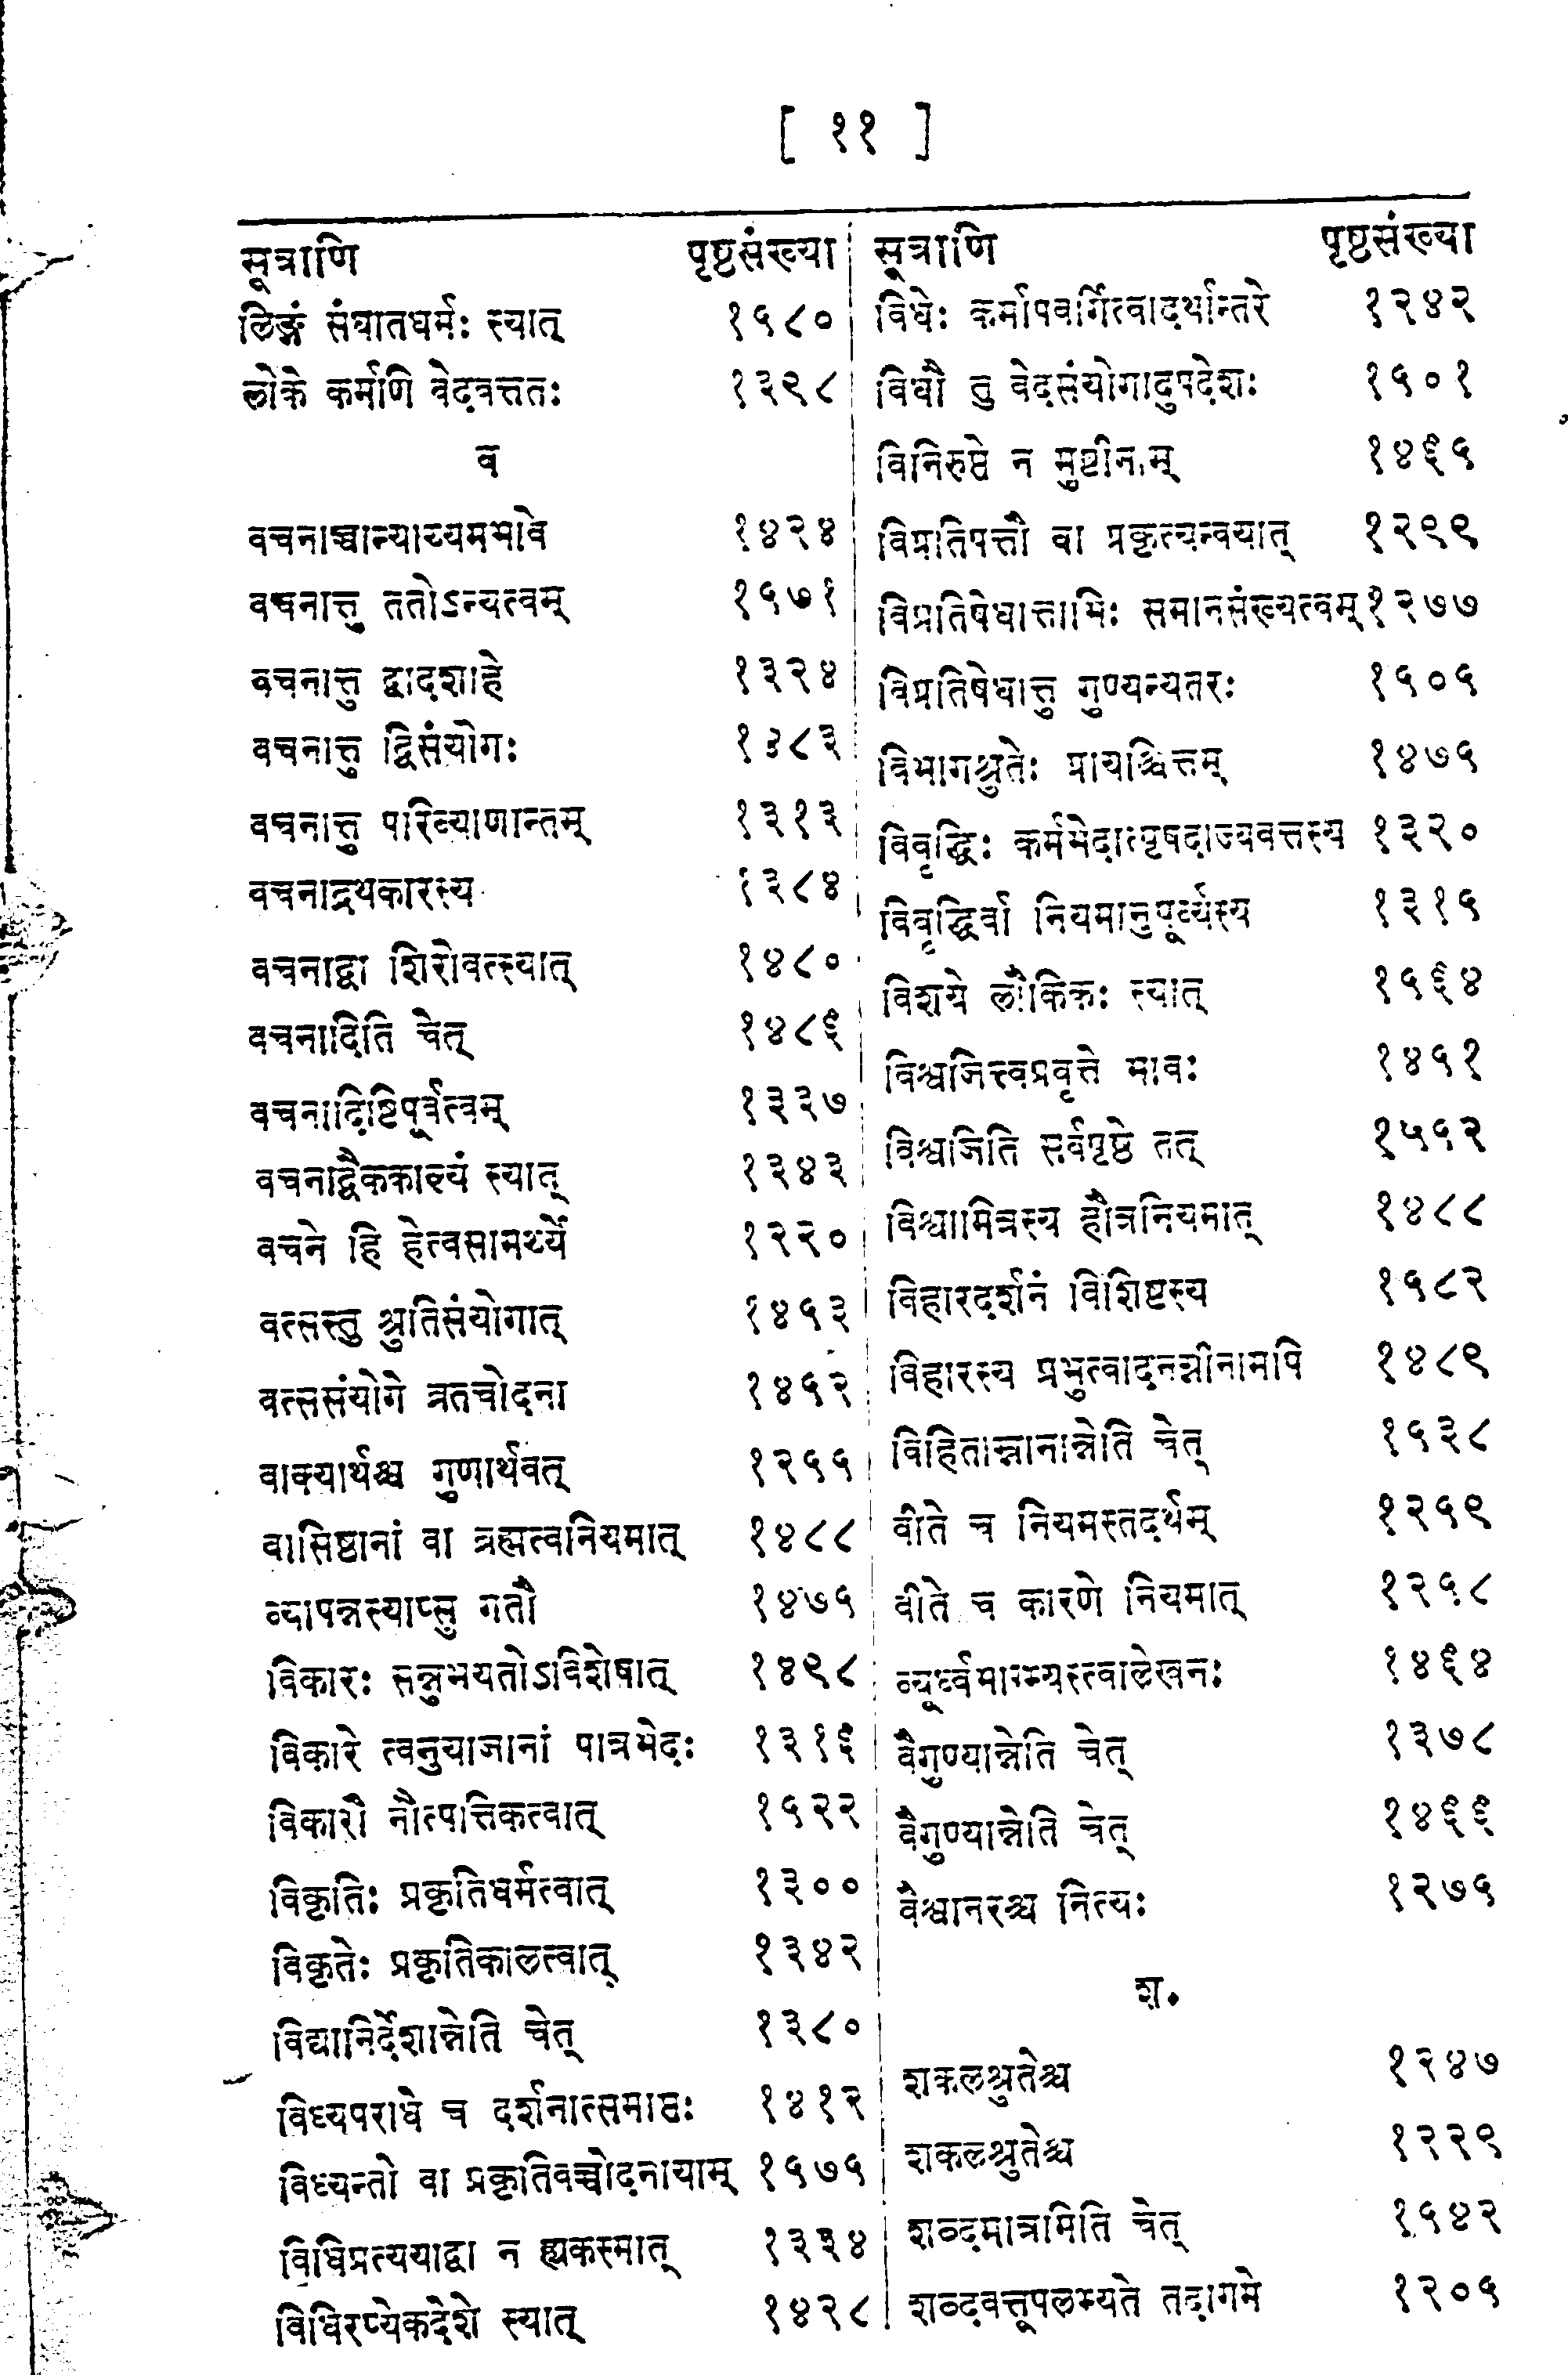 [ ११ ]
सूत्राणि पृष्ठसंख्या
लिङ्गं संघातधर्मः स्यात् १५८०
लोके कर्माणि वेदवत्ततः १३९८
व
वचनाच्चान्याय्यमभावे १४२४
वचनात्तु ततोऽन्यत्वम् १५७१
वचनात्तु द्वादशाहे १३२४
वचनात्तु द्विसंयोगः १३८३
वचनात्तु परिव्याणान्तम् १३१३
वचनाद्रथकारस्य १३८४
वचनाद्वा शिरोवत्स्यात् १४८०
वचनादिति चेत् १४८६
वचनादिष्टिपूर्वत्वम् १३३७
वचनाद्वैककाल्यं स्यात् १३४३
वचने हि हेत्वसामर्थ्ये १२२०
वत्सस्तु श्रुतिसंयोगात् १४५३
वत्ससंयोगे व्रतचोदना १४५२
वाक्यार्थश्च गुणार्थवत् १२५५
वासिष्ठानां वा ब्रह्मत्वनियमात् १४८८
व्यापन्नस्याप्सु गतौ १४७५
विकारः सन्नुभयतोऽविशेषात् १४९८
विकारे त्वनुयाजानां पात्रभेदः १३१६
विकारौ नौत्पत्तिकत्वात् १५२२
विकृतिः प्रकृतिधर्मत्वात् १३००
विकृतेः प्रकृतिकालत्वात् १३४२
विद्यानिर्देशान्नेति चेत् १३८०
विध्यपराधे च दर्शनात्समाप्तेः १४१२
विध्यन्तो वा प्रकृतिवच्चोदनायाम् १५७५
विधिप्रत्ययाद्वा न ह्यकस्मात् १३३४
विधिरप्येकदेशे स्यात् १४२८
सूत्राणि पृष्ठसंख्या
विधेः कर्मापवर्गित्वादर्थान्तरे १२४२
विधौ तु वेदसंयोगादुपदेशः १५०१
विनिरुप्ते न मुष्टीनाम् १४६५
विप्रतिपत्तौ वा प्रकृत्यन्वयात् १२९९
विप्रतिषेधात्ताभिः समानसंख्यत्वम् १२७७
विप्रतिषेधात्तु गुण्यन्यतरः १५०५
विभागश्रुतेः प्रायश्चित्तम् १४७५
विवृद्धिः कर्मभेदात्पृषदाज्यवत्तस्य १३२०
विवृद्धिर्वा नियमानुपूर्व्यस्य १३१५
विशये लौकिकः स्यात् १५६४
विश्वजित्त्वप्रवृत्ते भावः १४५१
विश्वजिति सर्वपृष्ठे तत् १५५२
विश्वामित्रस्य हौत्रनियमात् १४८८
विहारदर्शनं विशिष्टस्य १५८२
विहारस्य प्रभुत्वादनग्नीनामपि १४८९
विहिताम्नानान्नेति चेत् १५३८
वीते च नियमस्तदर्थम् १२५९
वीते च कारणे नियमात् १२५८
व्यूर्ध्वभाग्भ्यस्त्वालेखनः १४६४
वैगुण्यान्नेति चेत् १३७८
वैगुण्यान्नेति चेत् १४६६
वैश्वानरश्च नित्यः १२७५
श.
शकलश्रुतेश्च १२४७
शकलश्रुतेश्च १२२९
शब्दमात्रमिति चेत् १५४२
शब्दवत्तूपलभ्यते तदागमे १२०५